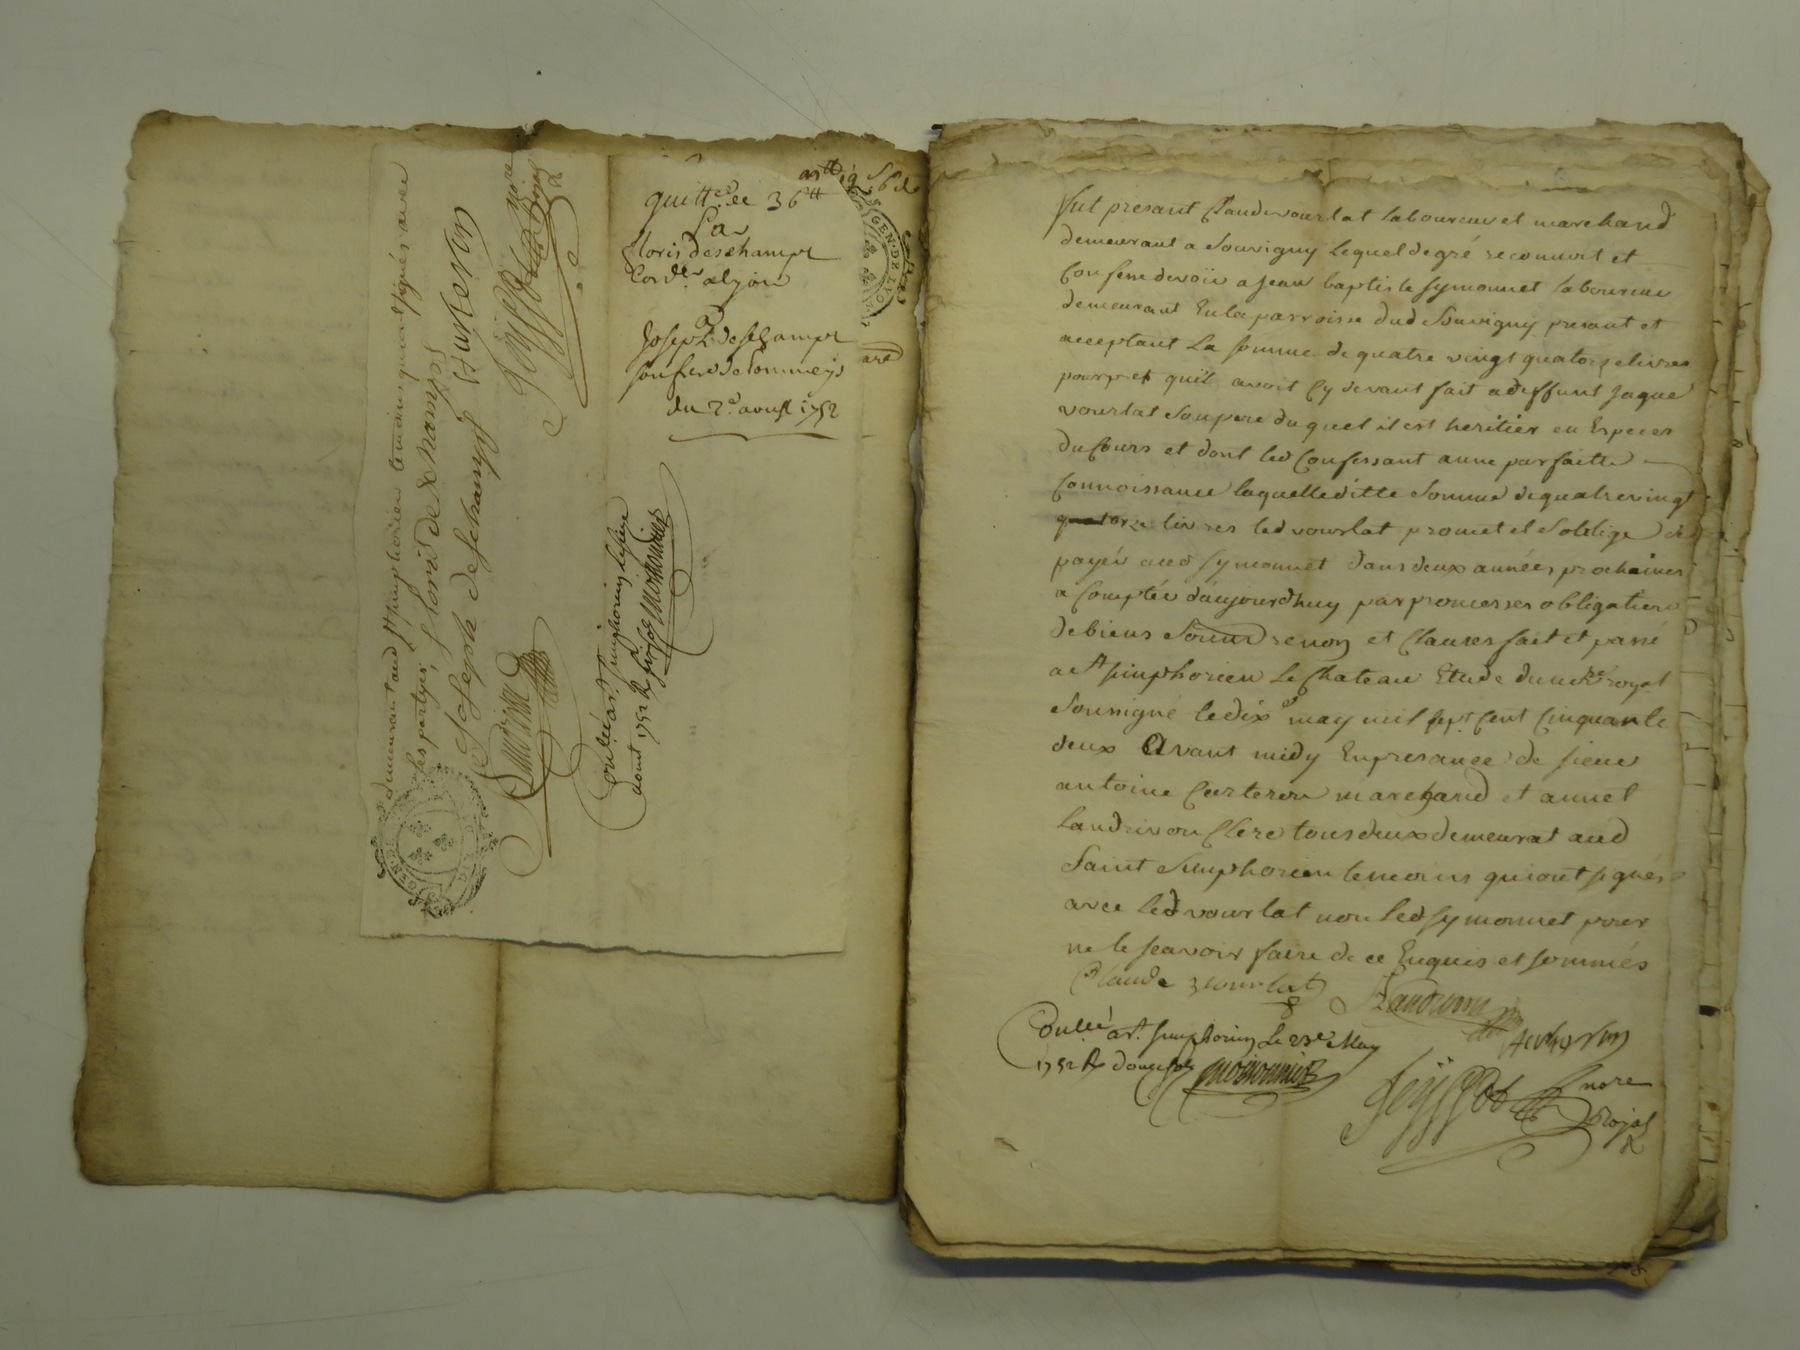 demeurant aud St simphorien temoins qui ont signés avec
les partyes
floris des champs
Joseph deschamps
Landrivon
Controllé a St simphorien le
aout 1752 R
quittce de 36tt
Par
floris deschamps
Cordr alyon
a
Joseph deschamps
son frere de Pommeys
du 2e aoust 1752
fut presant Claude vourlat laboureur et marchand
demeurant a Souvigny lequel de gré reconnoit et
Confesse devoir a jean baptiste symonnet laboureur
demeurant En la parroisse dud Souvigny presant et
acceptant La somme de quatre vingt quatorze livres
pour pret quil avoit Cy devant fait a deffunt jaque
vourlat Son pere duquel il est heritier en Especes
du Cours et dont led Confessant a une parfaitte
Connoissance laquelleditte Somme de quatre vingt
quatorze livres led vourlat promet et Soblige de
payer aud symonnet dans deux années prochaines
a Comptér daujourdhuy par promesses obligation
de biens Soum renon et Clauses fait et passé
a St simphorien Le Chateau Etude du nre royal
Sousigné le dixe may mil sept Cent Cinquante
deux Avant midy En presance de sieur
antoine marchand et annet
Landrivon Clerc tous deux demeurat aud
Saint Simphorien temoins qui ont signés
avec led vourlat non led symonnet pour
ne le sçavoir faire de ce Enquis et sommés
Claude vourlat Landrivon
Conllé a St simphorien Le 23e May
1752 R douze sols
nore
Royal